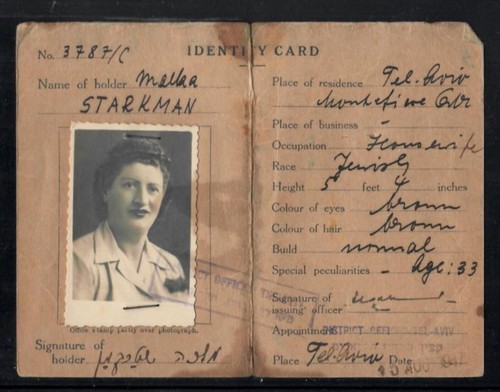 No. 3787/C
IDENTITY CARD
Name of holder Malka
STARKMAN
Office stamp partly over photograph.
Signature of
holder מלכה סטרקמן
Place of residence Tel-Aviv
Montefiore Qtr
Place of business -
Occupation Housewife
Race Jewish
Height 5 feet 4 inches
Colour of eyes brown
Colour of hair brown
Build normal
Special peculiarities - Age: 33
Signature of
issuing officer
Appointment DISTRICT OFFICER TEL-AVIV
Place Tel-Aviv Date 15 AUG